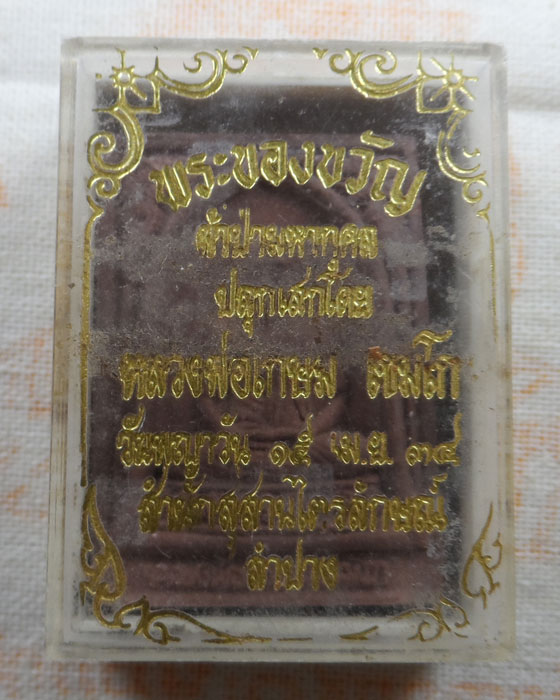 พระของขวัญ
ปลุกเสกโดย
หลวงพ่อเกษม เขมโก
วันพญาวัน ๑๕ เม.ย. ๓๔
สำนักสุสานไตรลักษณ์
ลำปาง